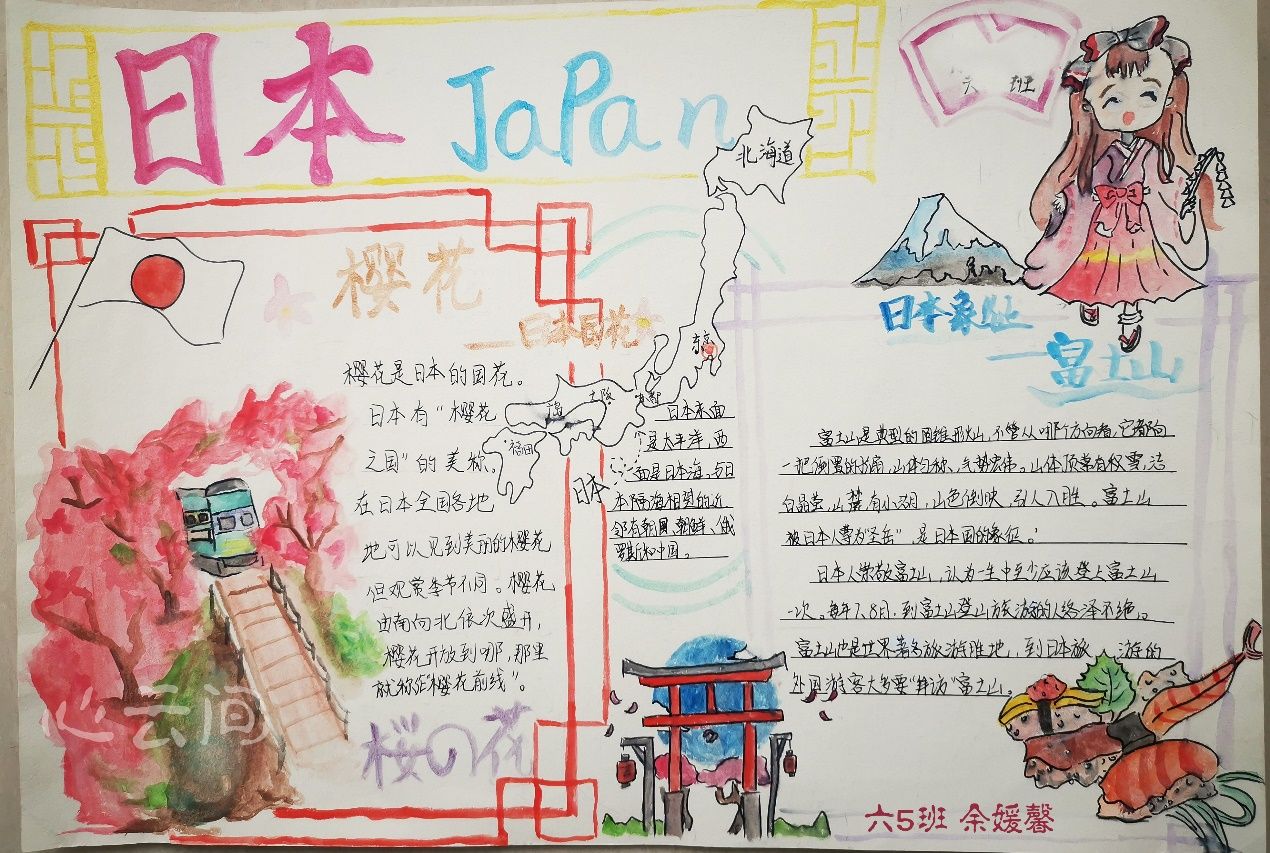 日本 JaPan
六 班
北海道
樱花
日本国花
日本象征
富士山
东京
大阪
福田
日本
樱花是日本的国花。
日本有“樱花
之国”的美称。
在日本全国各地
地可以见到美丽的樱花
但观赏季节不同。樱花
由南向北依次盛开,
樱花开放到哪,那里
就称作“樱花前线”。
桜の花
日本东面
是太平洋,西
面是日本海。与日
本隔海相望的近
邻有韩国、朝鲜、俄
罗斯和中国。
富士山是典型的圆锥形火山,不管从哪个方向看,它都向
一把倒置的折扇,山体匀称、气势宏伟。山体顶常有积雪,洁
白晶莹,山麓有小湖,山色倒映,引人入胜。富士山
被日本人尊为圣岳”是日本国的象征。
日本人崇敬富士山,认为一生中至少应该登上富士山
一次。每年7、8月,到富士山登山旅游的人络泽不绝。
富士山也是世界著名旅游胜地,到日本旅 游的
外国游客大多要“拜访”富士山。
心云间
六5班 余媛馨